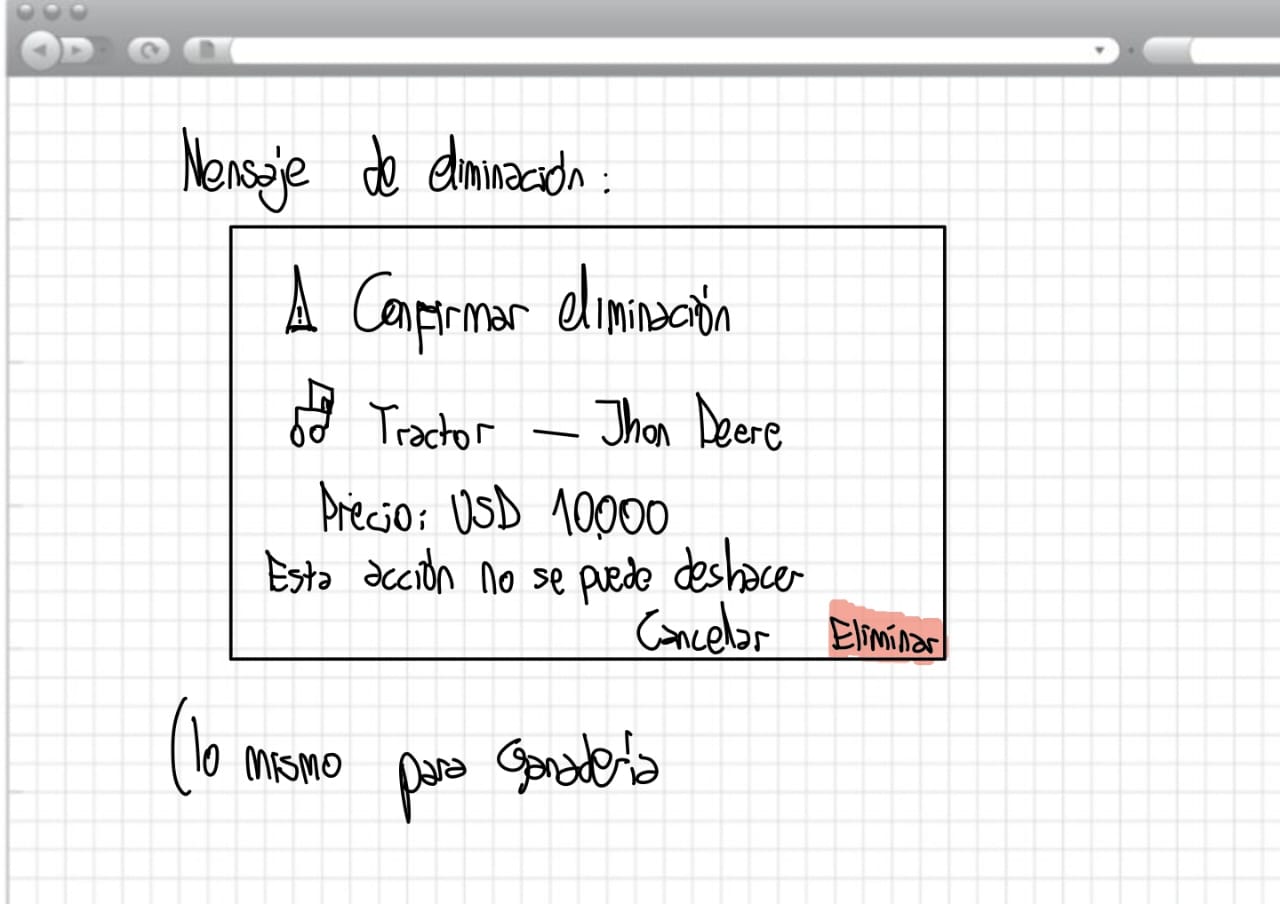 Mensaje de eliminación:
⚠ Confirmar eliminación
Tractor — Jhon Deere
Precio: USD 10,000
Esta acción no se puede deshacer
Cancelar Eliminar
(lo mismo para Ganadería